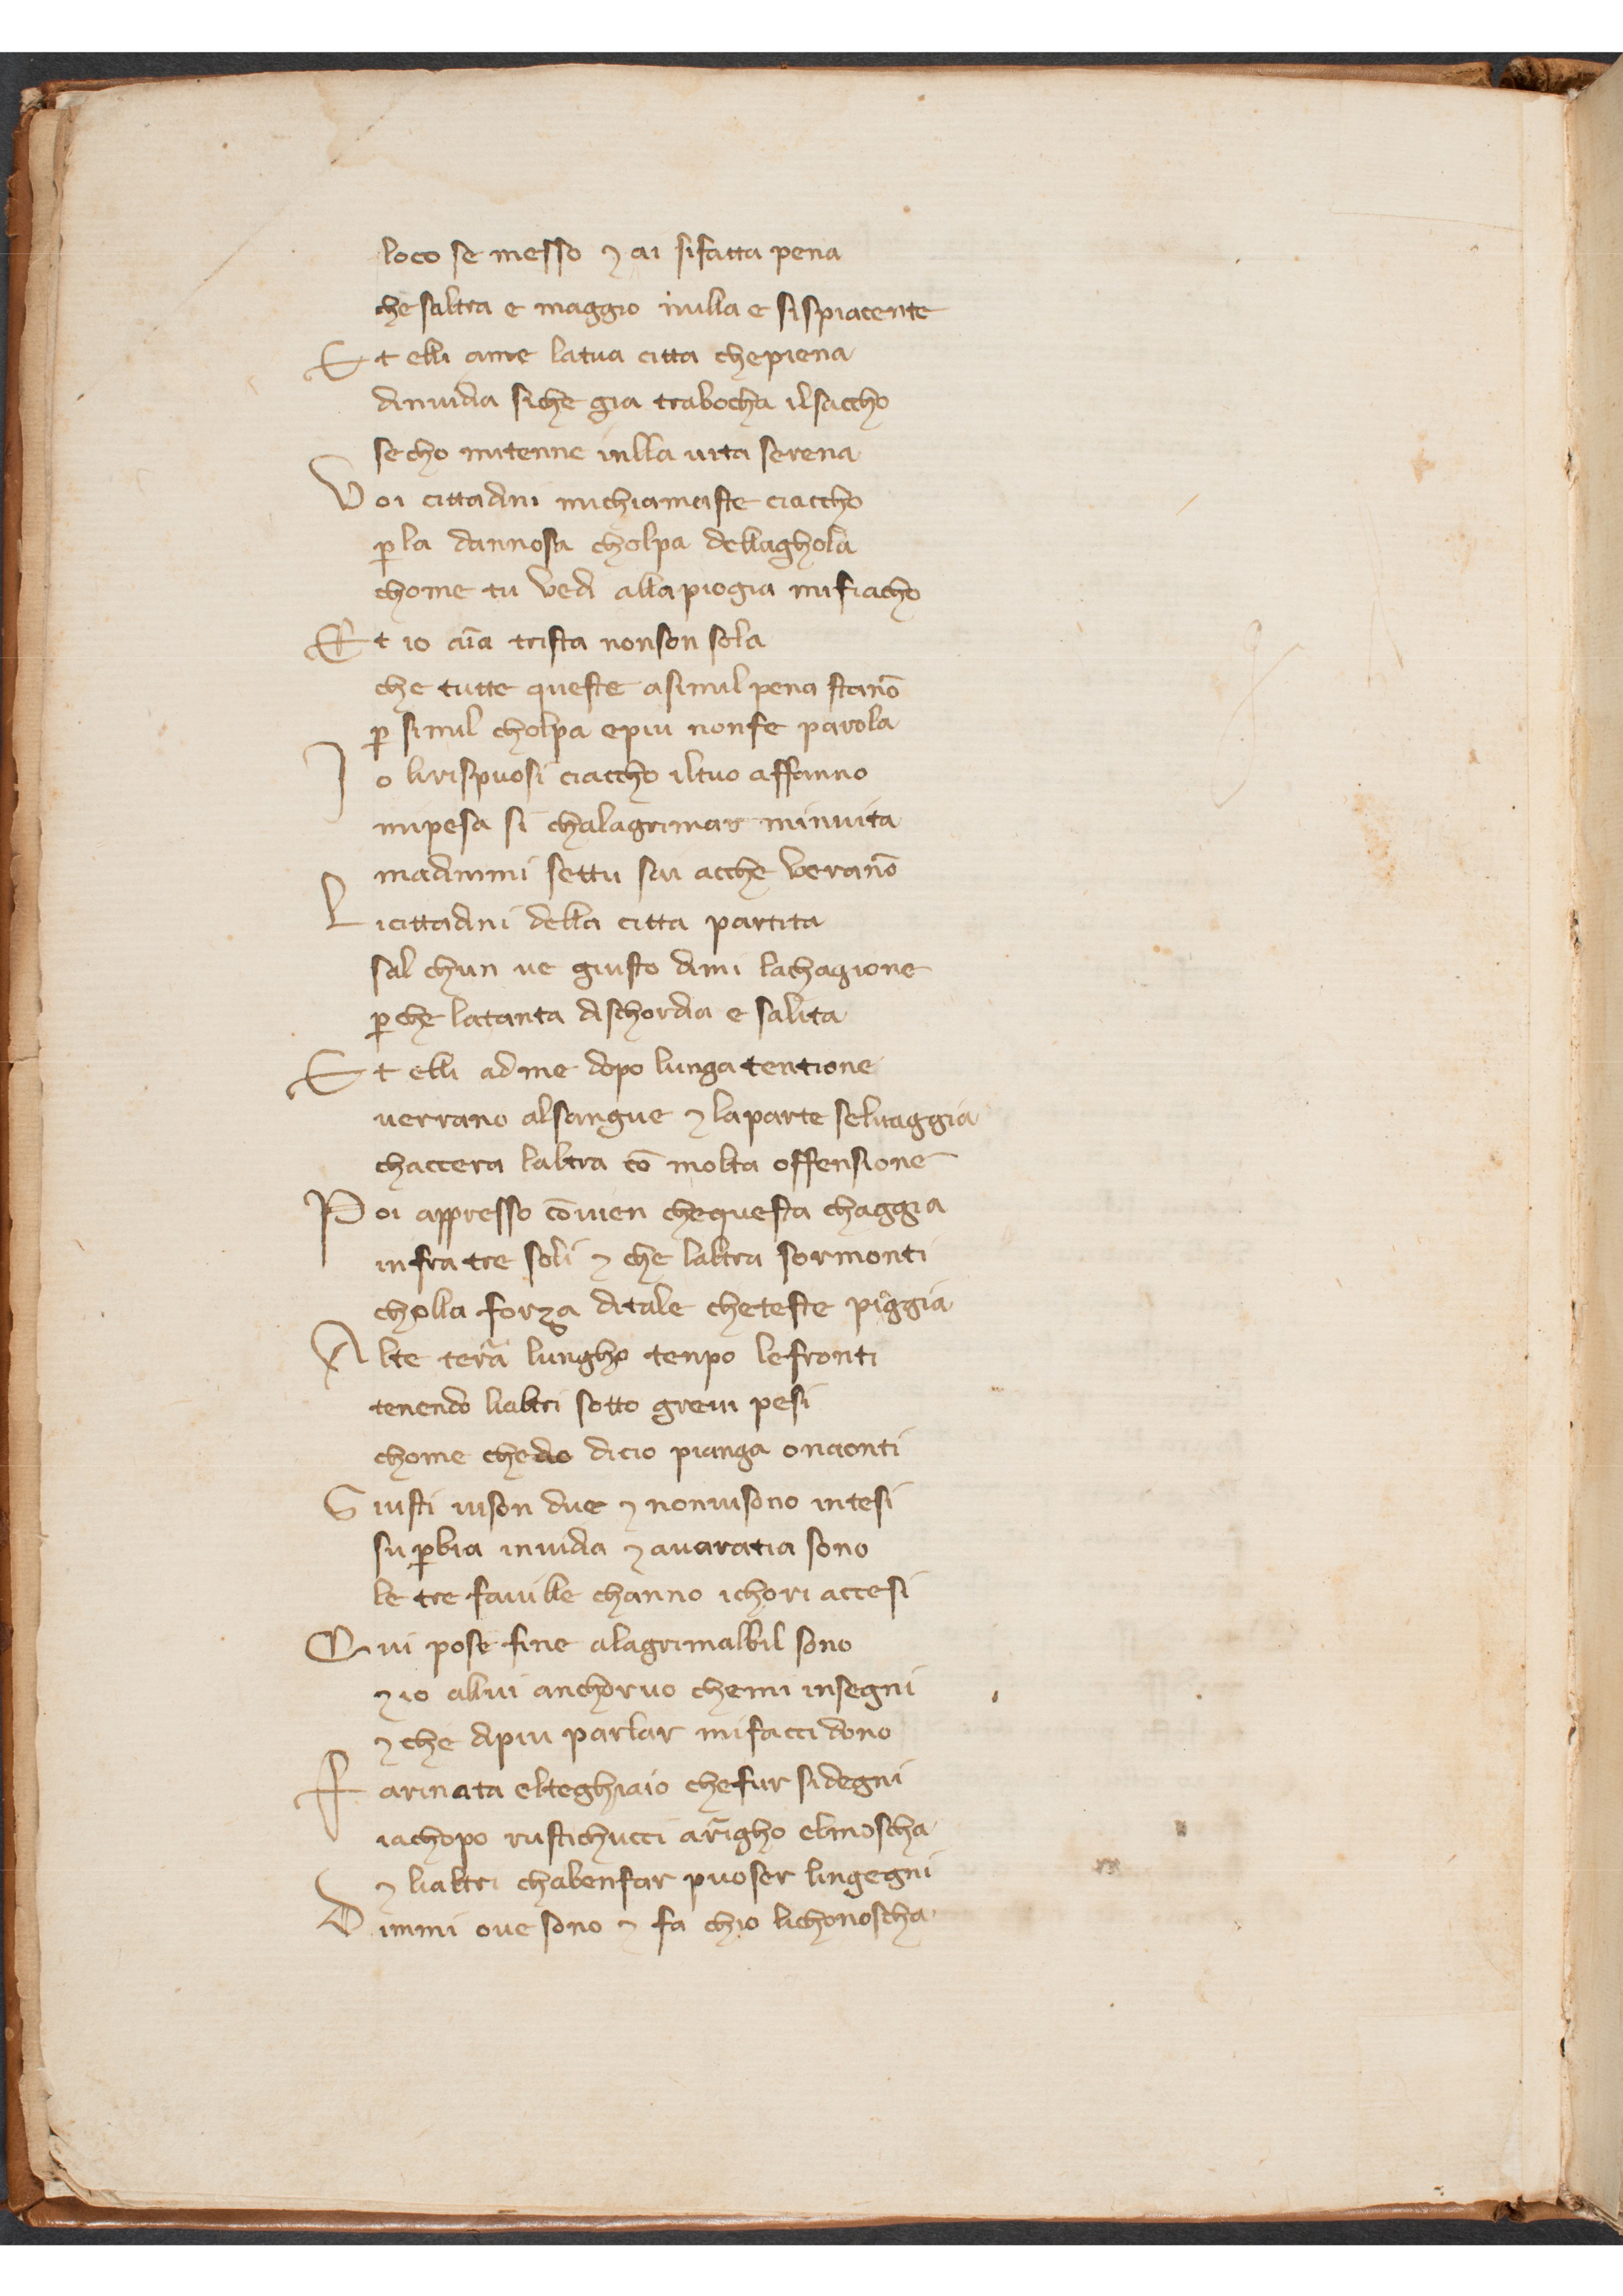 loco se messo ⁊ ai sifatta pena
che saltra e maggio nulla e sispiacente
Et elli ame latua citta chepiena
dinuidia siche gia trabocha ilsaccho
secho mitenne inlla uita serena
Voi cittadini michiamaste ciaccho
ꝑ la dannosa cholpa dellaghola
chome tu vedi alla piogia mifiacho
Et io aīa trista nonson sola
che tutte queste asimil pena stanō
ꝑ simil cholpa epiu nonfe parola
Io lirispuosi ciaccho iltuo affanno
mipesa si chalagrimar minuita
madimmi settu sai acche veranō
Licittadini della citta partita
sal chun ue giusto dimi lachagione
ꝑche latanta dischordia e salita
Et elli ad me dopo lunga tentione
uerrano alsangue ⁊ laparte seluaggia
chaccera laltra cō molta offensione
Poi appresso cōuien chequesta chaggia
infra tre soli ⁊ che laltra sormonti
cholla forza ditale cheteste piaggia
Alte terrā lungho tenpo lefronti
tenendo lialtri sotto greui pesi
chome che do dicio pianga onaonti
Giusti uison due ⁊ nonuisono intesi
suꝑbia inuidia ⁊ auaratia sono
le tre fauille channo ichori accesi
Qui pose fine alagrimalbil sono
⁊ io allui anchor uo chemi insegni
⁊ che dipiu parlar mifacci dono
Farinata elteghiaio chefur sidegni
iachopo rustichucci arrigho elmoscha
⁊ lialtri chabenfar puoser lingegni
Dimmi oue sono ⁊ fa chio lichonoscha